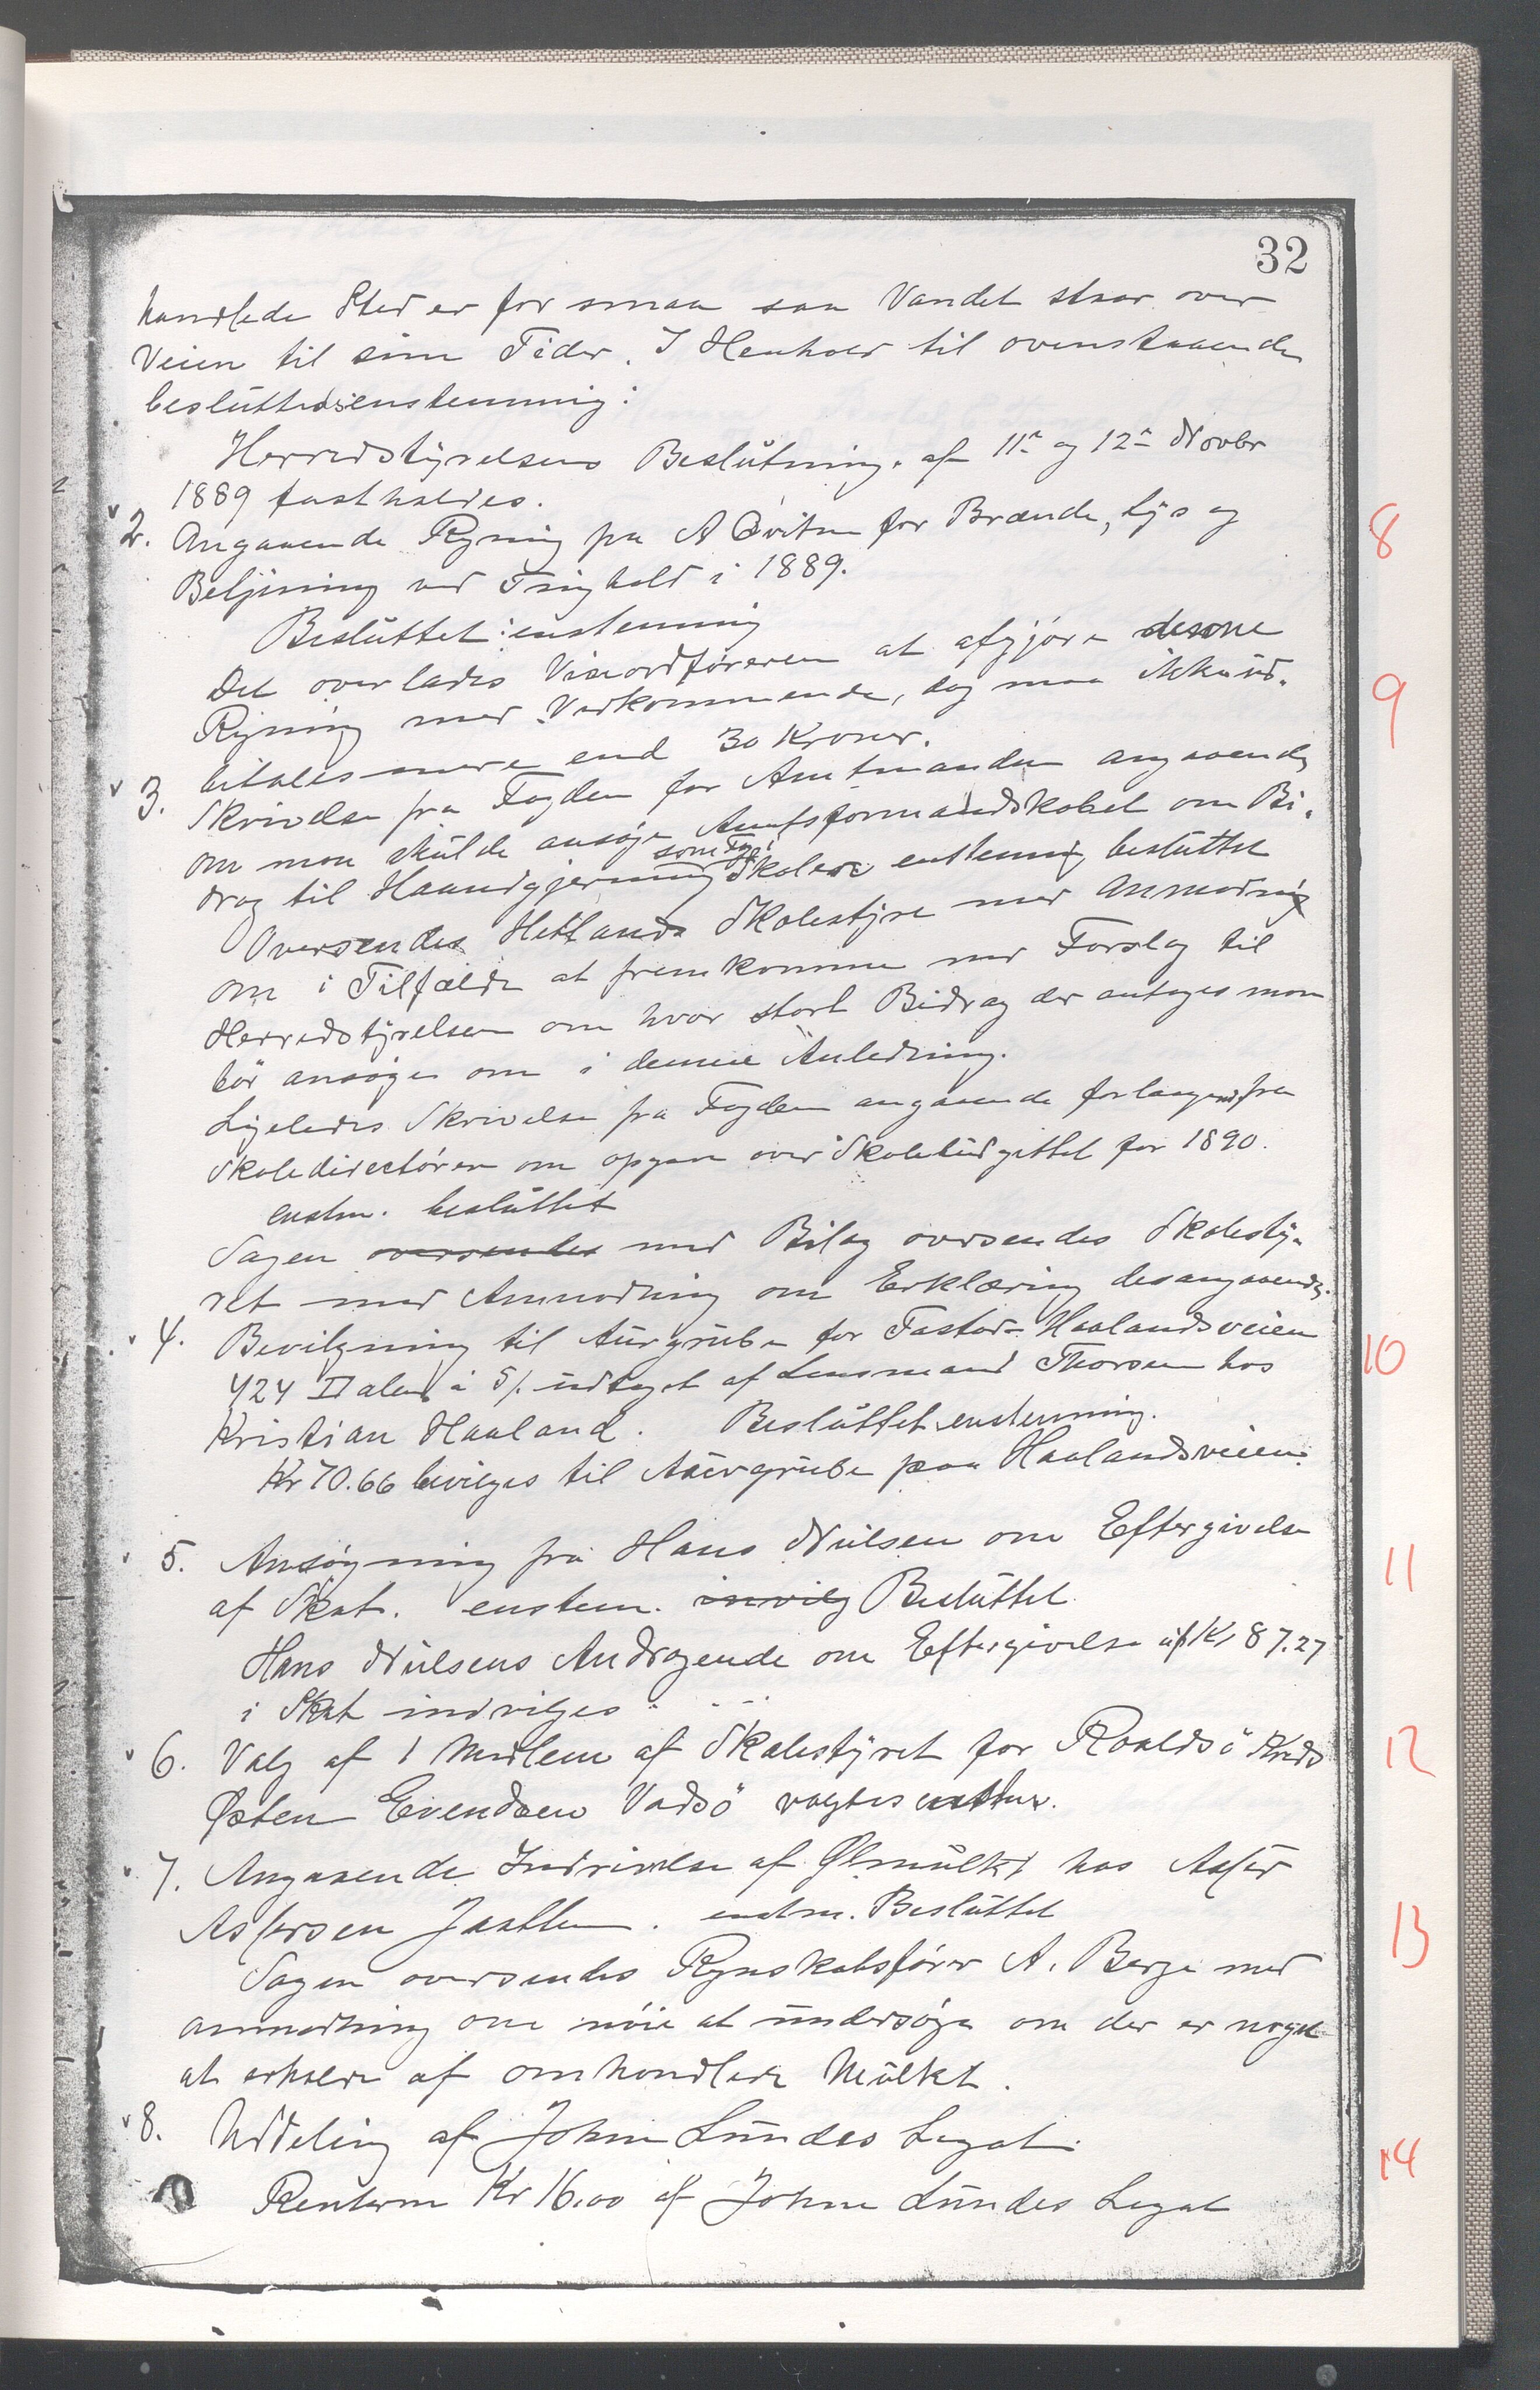 32
handlede Sted er for smaa saa Vandet staar over
Veien til sine Tider. I Henhold til ovenstaaende
besluttedes enstemmig:
Herredstyrelsens Beslutning af 11te og 12te Novbr
1889 fastholdes.
2. Angaaende Regning fra A Qvitne for Brænde, Lys og
Betjening ved Tinghold i 1889.
Besluttet: enstemmig
Det overlades Viceordføreren at afgjøre denne
Regning med Vedkommende, dog maa ikke ud-
betales mere end 30 Kroner.
3. Skrivelse fra Fogden for Amtmanden angaaende
om man skulde ansøge Amtsformandskabet om Bi-
drag til Haandgjerning som Fag i Skolen enstemmig besluttet
Oversendes Hetlands Skolestyre med Anmodning
om i Tilfælde at fremkomme med Forslag til
Herredstyrelsen om hvor stort Bidrag der antages man
bør ansøge om i denne Anledning.
Ligeledes Skrivelse fra Fogden angaaende forlangende fra
Skoledirectøren om opgave over Skolebudgettet for 1890.
enstm. besluttet
Sagen oversendes med Bilag oversendes Skolesty-
ret med Anmodning om Erklæring desangaaende.
4. Bevilgning til Aurgrube for Tastad-Haalandsveien
424 □ alen à 5/. udtaget af Lensmand Thorsen hos
Kristian Haaland. Besluttet enstemmig.
Kr 70.66 bevilges til Aurgrube paa Haalandsveien.
5. Ansøgning fra Hans Nilsen om Eftergivelse
af Skat. enstem. indvilg Besluttet
Hans Nilsens Andragende om Eftergivelse af Kr 87.27
i Skat indvilges
6. Valg af 1 Medlem af Skolestyret for Roaldsø Kreds
Østen Evendsen Vadsø valgtes enstm.
7. Angaaende Inddrivelse af Ølmulkt hos Asser
Assersen Jaatten. enstm. Besluttet
Sagen oversendes Regnskabsfører A. Berge med
anmodning om nøie at undersøge om der er noget
at erholde af omhandlede Mulkt.
8. Uddeling af John Lundes Legat.
Renterne Kr 16,00 af John Lundes Legat
8
9
10
11
12
13
14